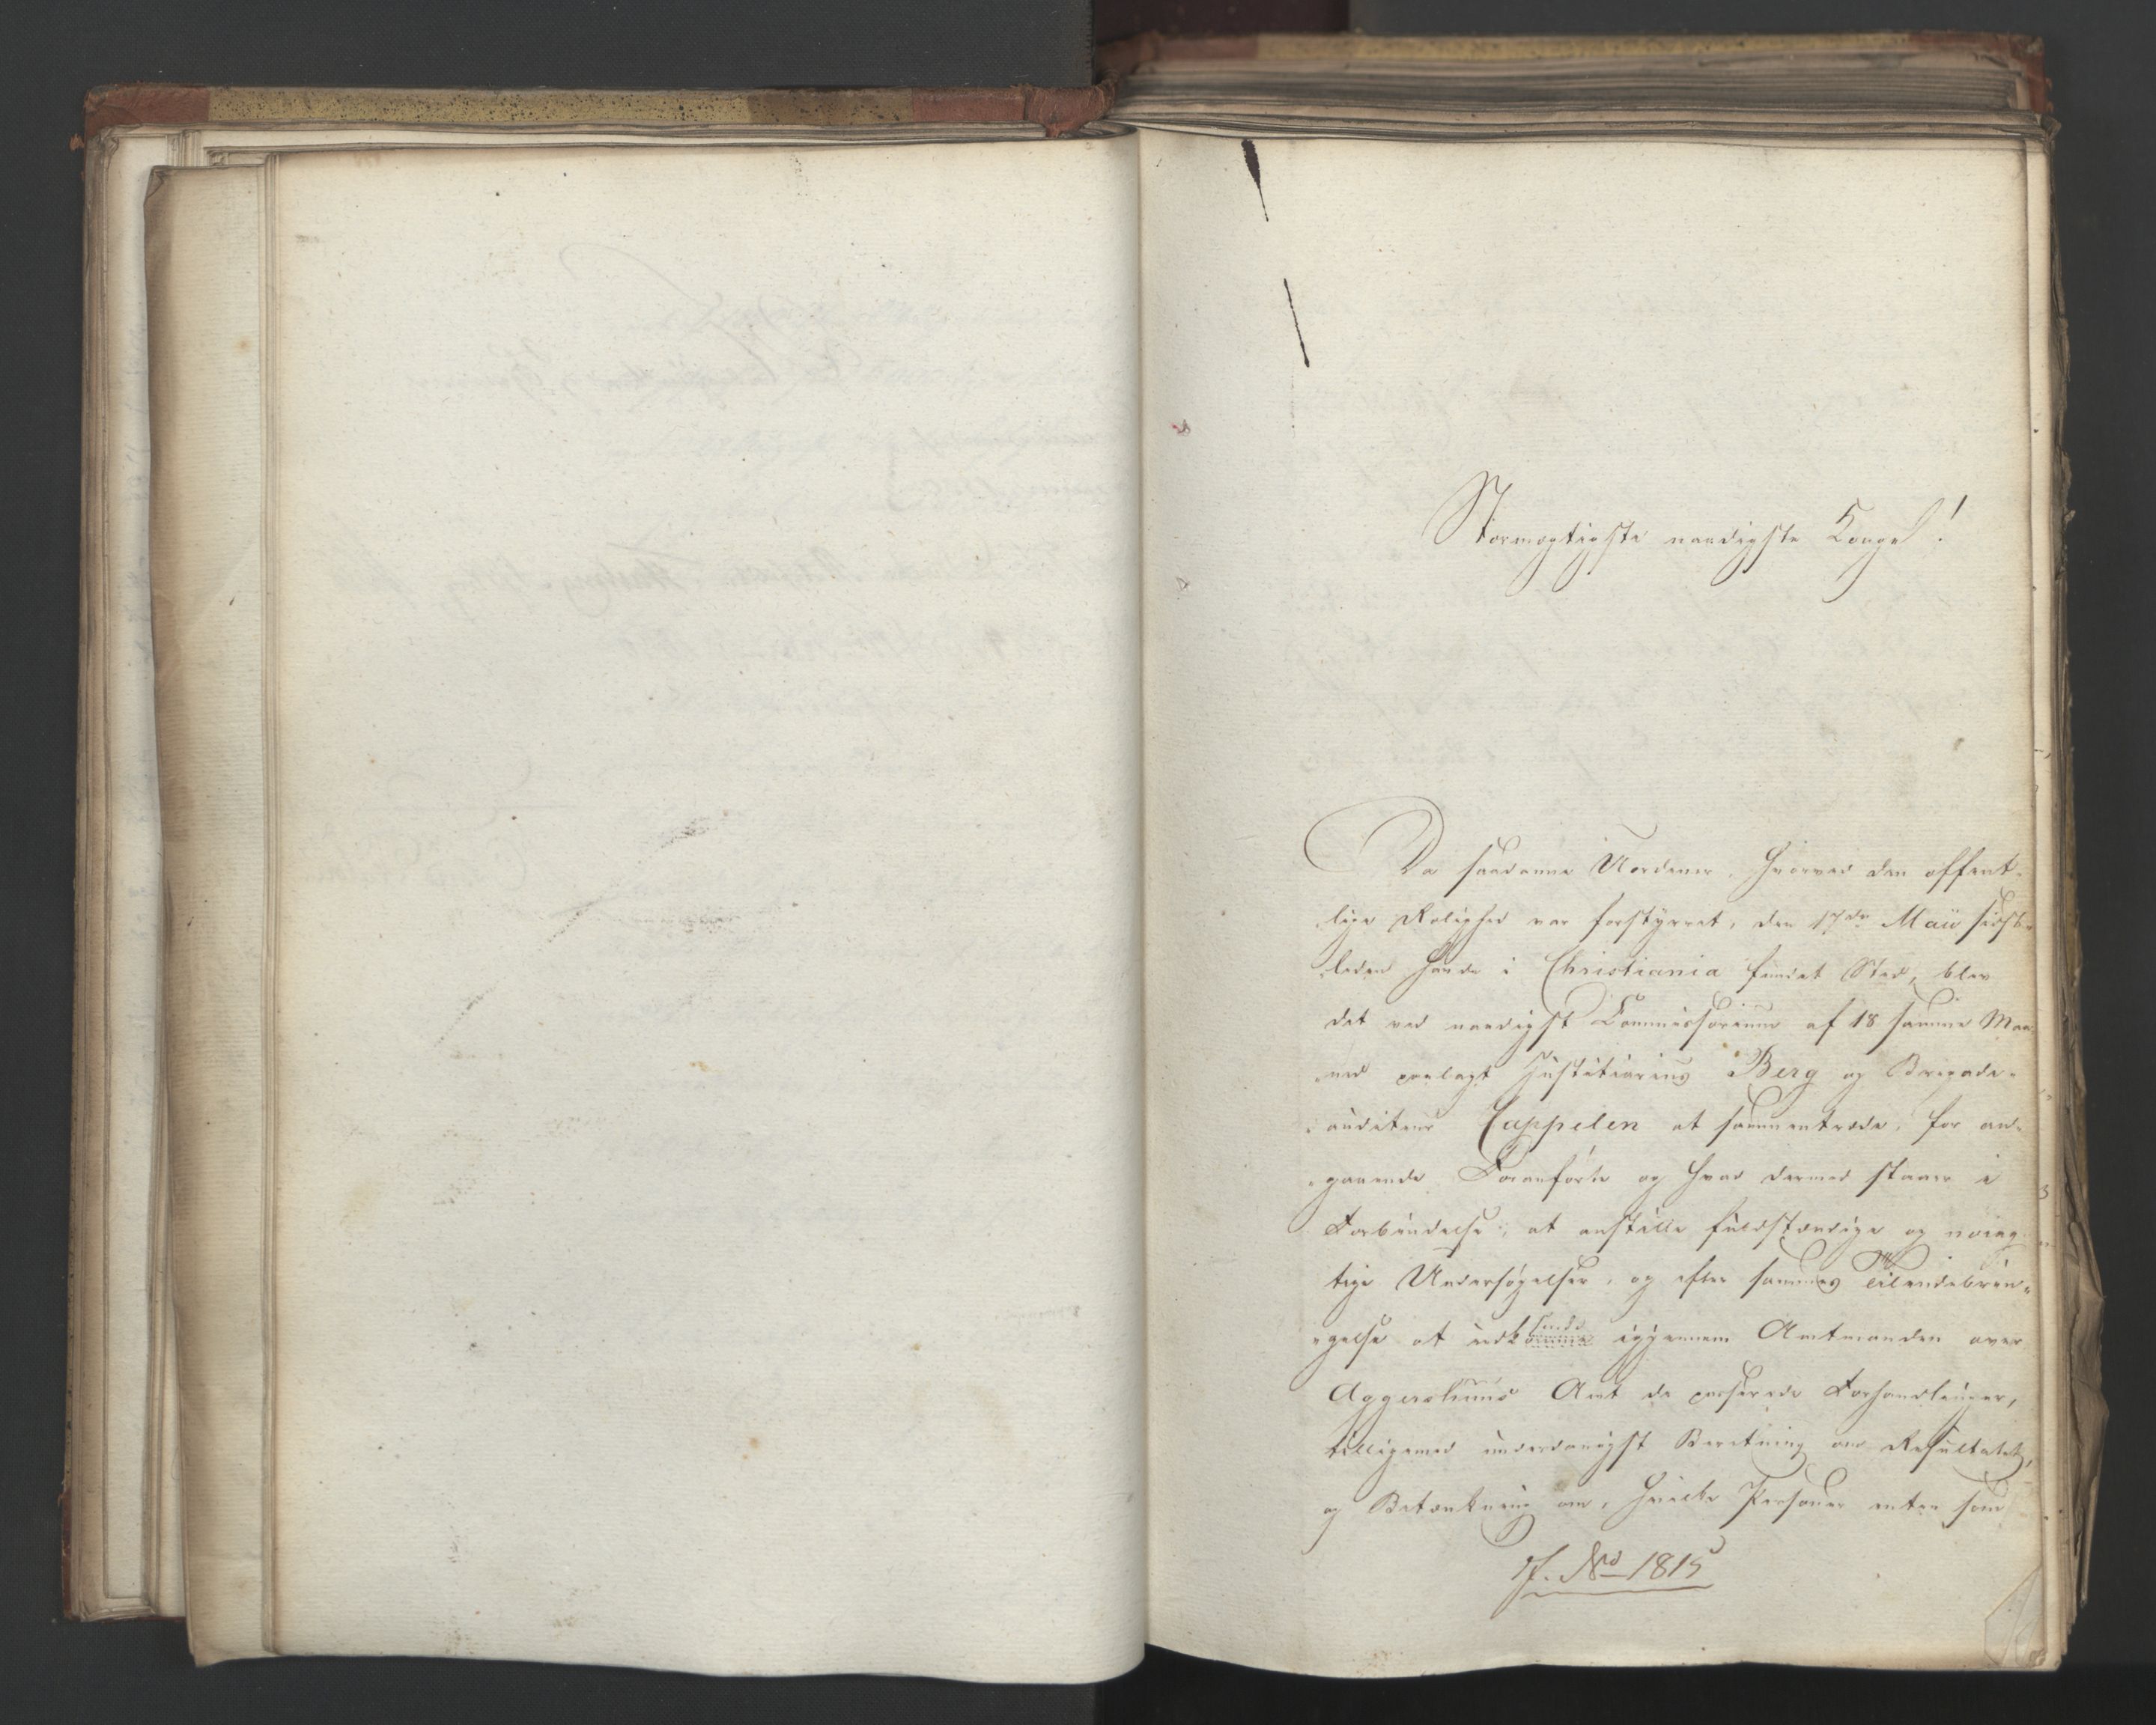 Stormægtigste naadigste Konge!
Da saadanne Uordener, hvorved den offent-
lige Rolighed var forstyrret, den 17de Maii sidst-
leden havde i Christiania fundet Sted, blev
det ved naadigst Commissorium af 18 samme Maa-
ned paalagt Justitiarius Berg og Brigade-
auditeur Cappelen at sammentræde, for an-
gaaende Foranførte og hvad dermed staaer i
Forbindelse, at anstille fuldstændige og nøiag-
tige Undersøgelser, og efter sammes Tilendebrin-
gelse at indsende igjennem Amtmanden over
Aggershuus Amt de passerede Forhandlinger,
tilligemed underdanigst Beretning om Resultatet,
og Betænkning om, hvilke Personer enten som
J. No 1815